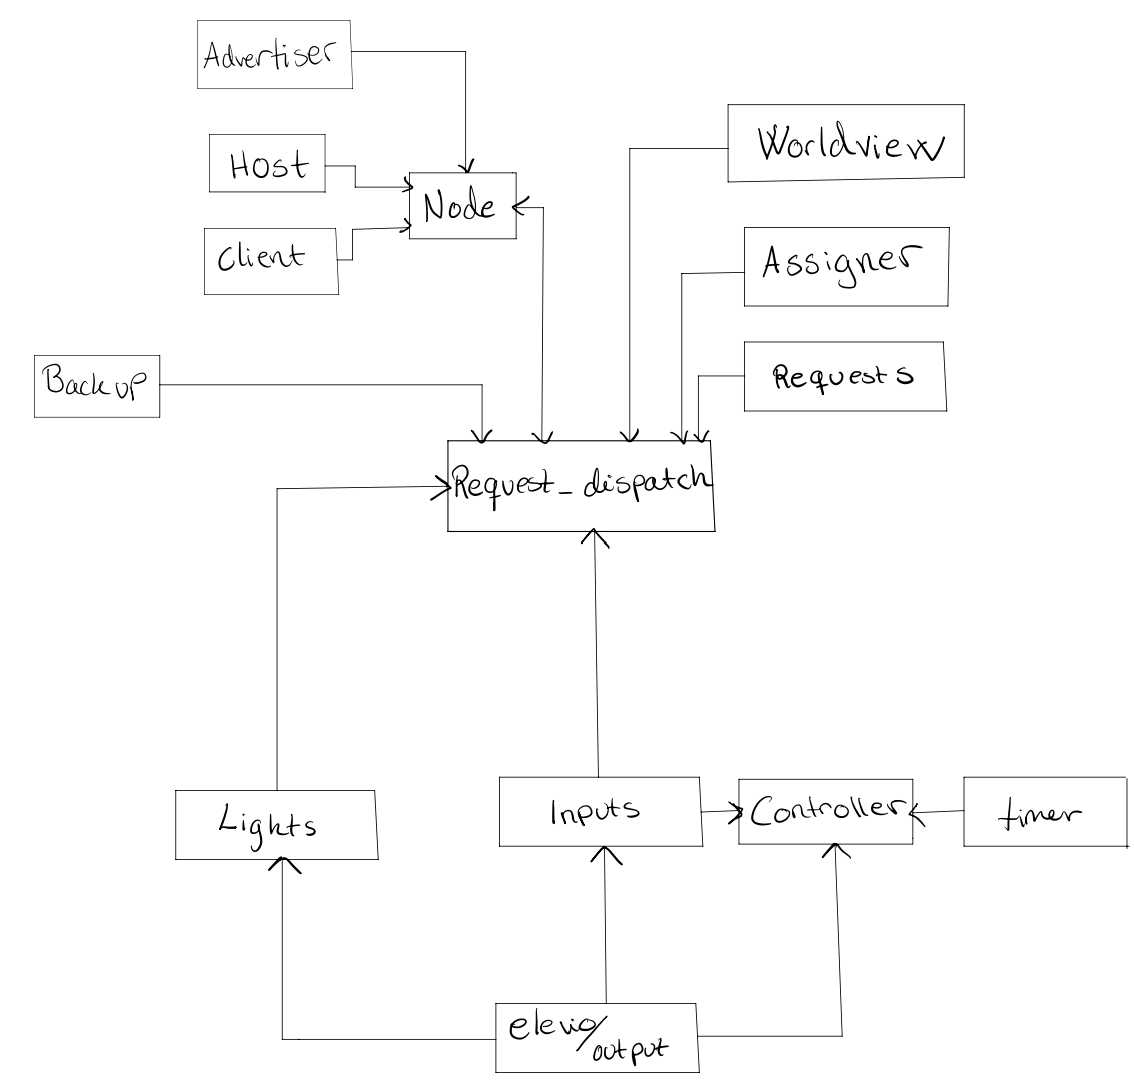 Advertiser
Host
Node
Client
Worldview
Assigner
Requests
Backup
Request_dispatch
Lights
Inputs
Controller
timer
elevio/
output